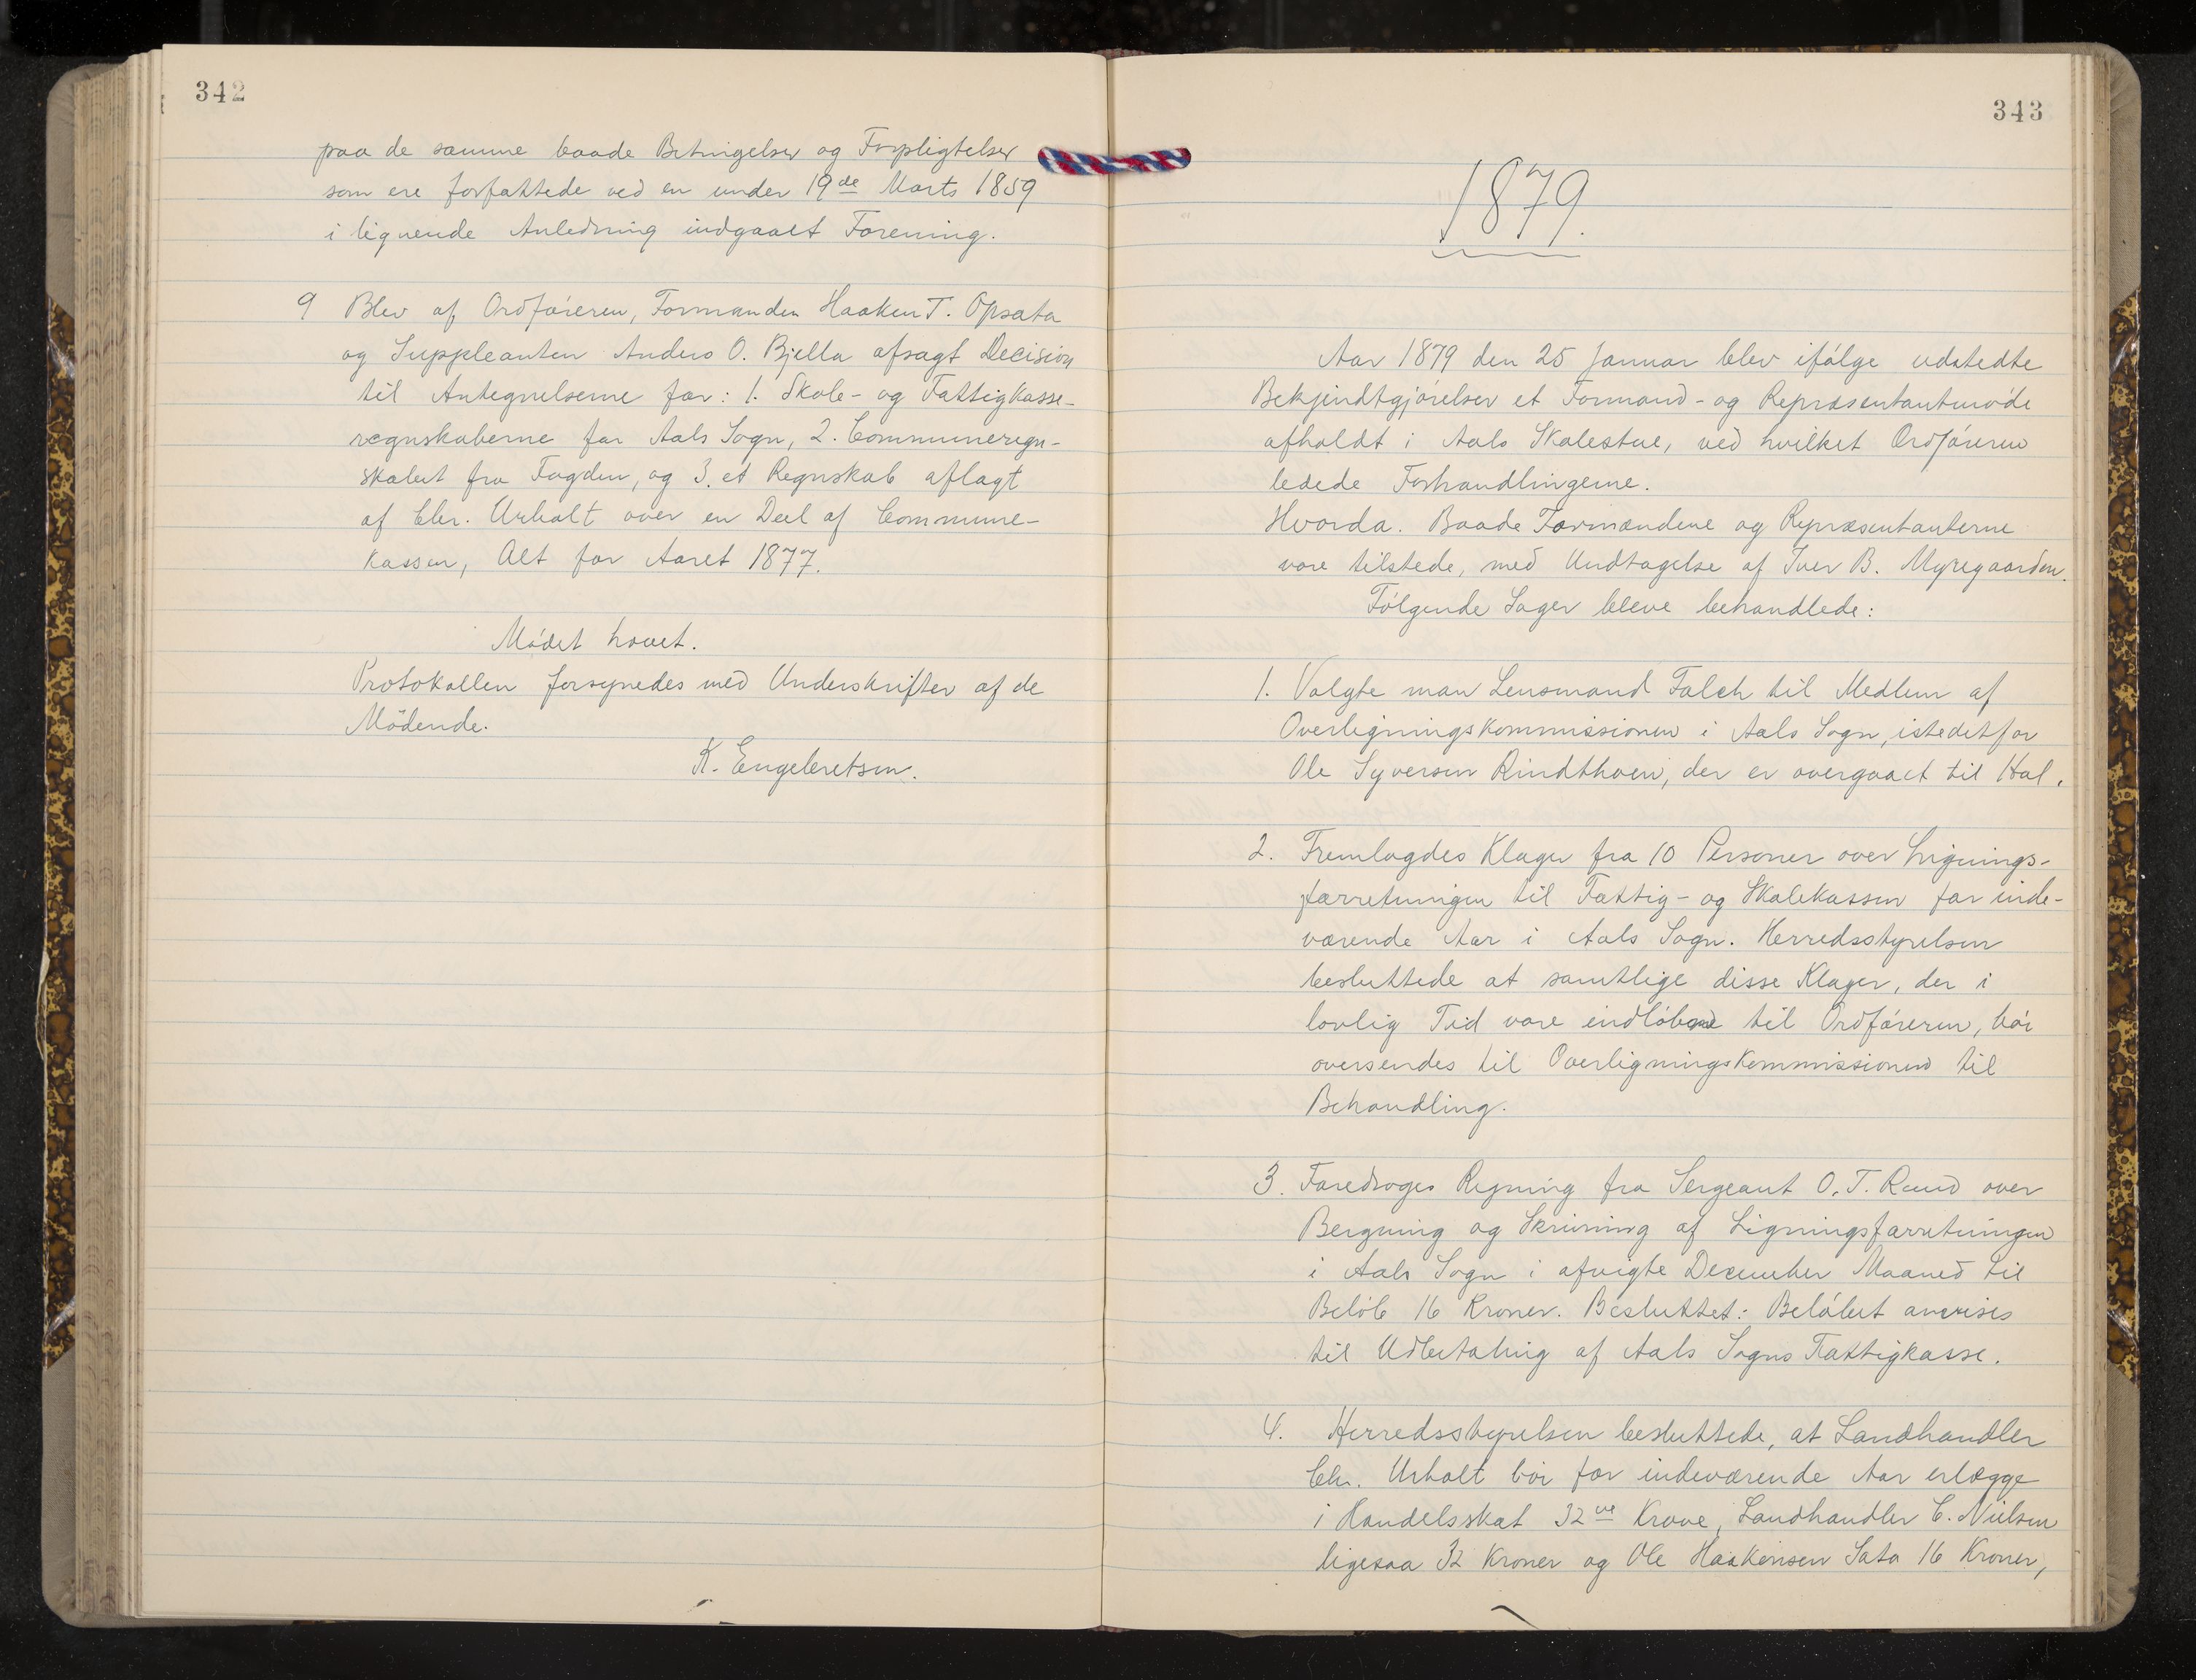 342
paa de samme baade Betingelser og Forpligtelser
som ere forfattede ved en under 19de Marts 1859
i lignende Anledning indgaaet Forening.
9 Blev af Ordføreren, Formanden Haaken T. Opsata
og Suppleanten Anders O. Bjella afsagt Decision
til Antegnelserne for: 1. Skole- og Fattigkasse-
regnskaberne for Aals Sogn, 2. Communeregn-
skabet fra Fogden, og 3. et Regnskab aflagt
af Chr. Urholt over en Deel af Commune-
kassen, Alt for Aaret 1877.
Mødet hævet.
Protokollen forsynedes med Underskrifter af de
Mødende.
K. Engebretsen.
343
1879.
Aar 1879 den 25 Januar blev ifølge udstedte
Bekjendtgjørelser et Formand- og Repræsentantmøde
afholdt i Aals Skolestue, ved hvilket Ordføreren
ledede Forhandlingerne.
Hvorda. Baade Formændene og Repræsentanterne
vare tilstede, med Undtagelse af Iver B. Myregaarden.
Følgende Sager bleve behandlede:
1. Valgte man Lensmand Falch til Medlem af
Overligningskommissionen i Aals Sogn, istedetfor
Ole Syversen Rindthoen, der er overgaaet til Hol.
2. Fremlagdes Klager fra 10 Personer over Lignings-
forretningen til Fattig- og Skolekassen for inde-
værende Aar i Aals Sogn. Herredsstyrelsen
besluttede at samtlige disse Klager, der i
lovlig Tid vare indløbne til Ordføreren, bør
oversendes til Overligningskommissionen til
Behandling.
3. Foredroges Regning fra Sergeant O. T. Ruud over
Bergning og Skrivning af Ligningsforretningen
i Aals Sogn i afvigte December Maaned til
Beløb 16 Kroner. Besluttet: Beløbet anvises
til Udbetaling af Aals Sogns Fattigkasse.
4. Herredsstyrelsen besluttede, at Landhandler
Chr. Urholt bør for indeværende Aar erlægge
i Handelsskat 32ve Krone, Landhandler C. Nielsen
ligesaa 32 Kroner og Ole Haakensen Sata 16 Kroner,